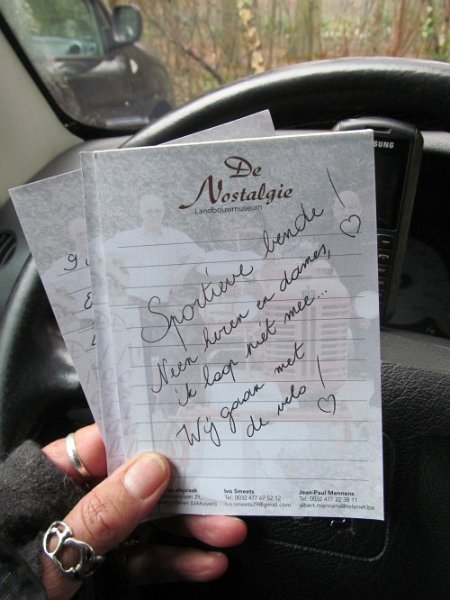 De
Nostalgie
Landbouwmuseum
Sportieve bende!
Neen heren en dames,
ik loop niét mee...
Wij gaan met
de velo!
Ivo Smeets
Tel. 0032 477 67 52 12
ivo.smeets29@gmail.com
Jean-Paul Mennens
Tel. 0032 477 22 38 11
albert.mennens@telenet.be
SAMSUNG